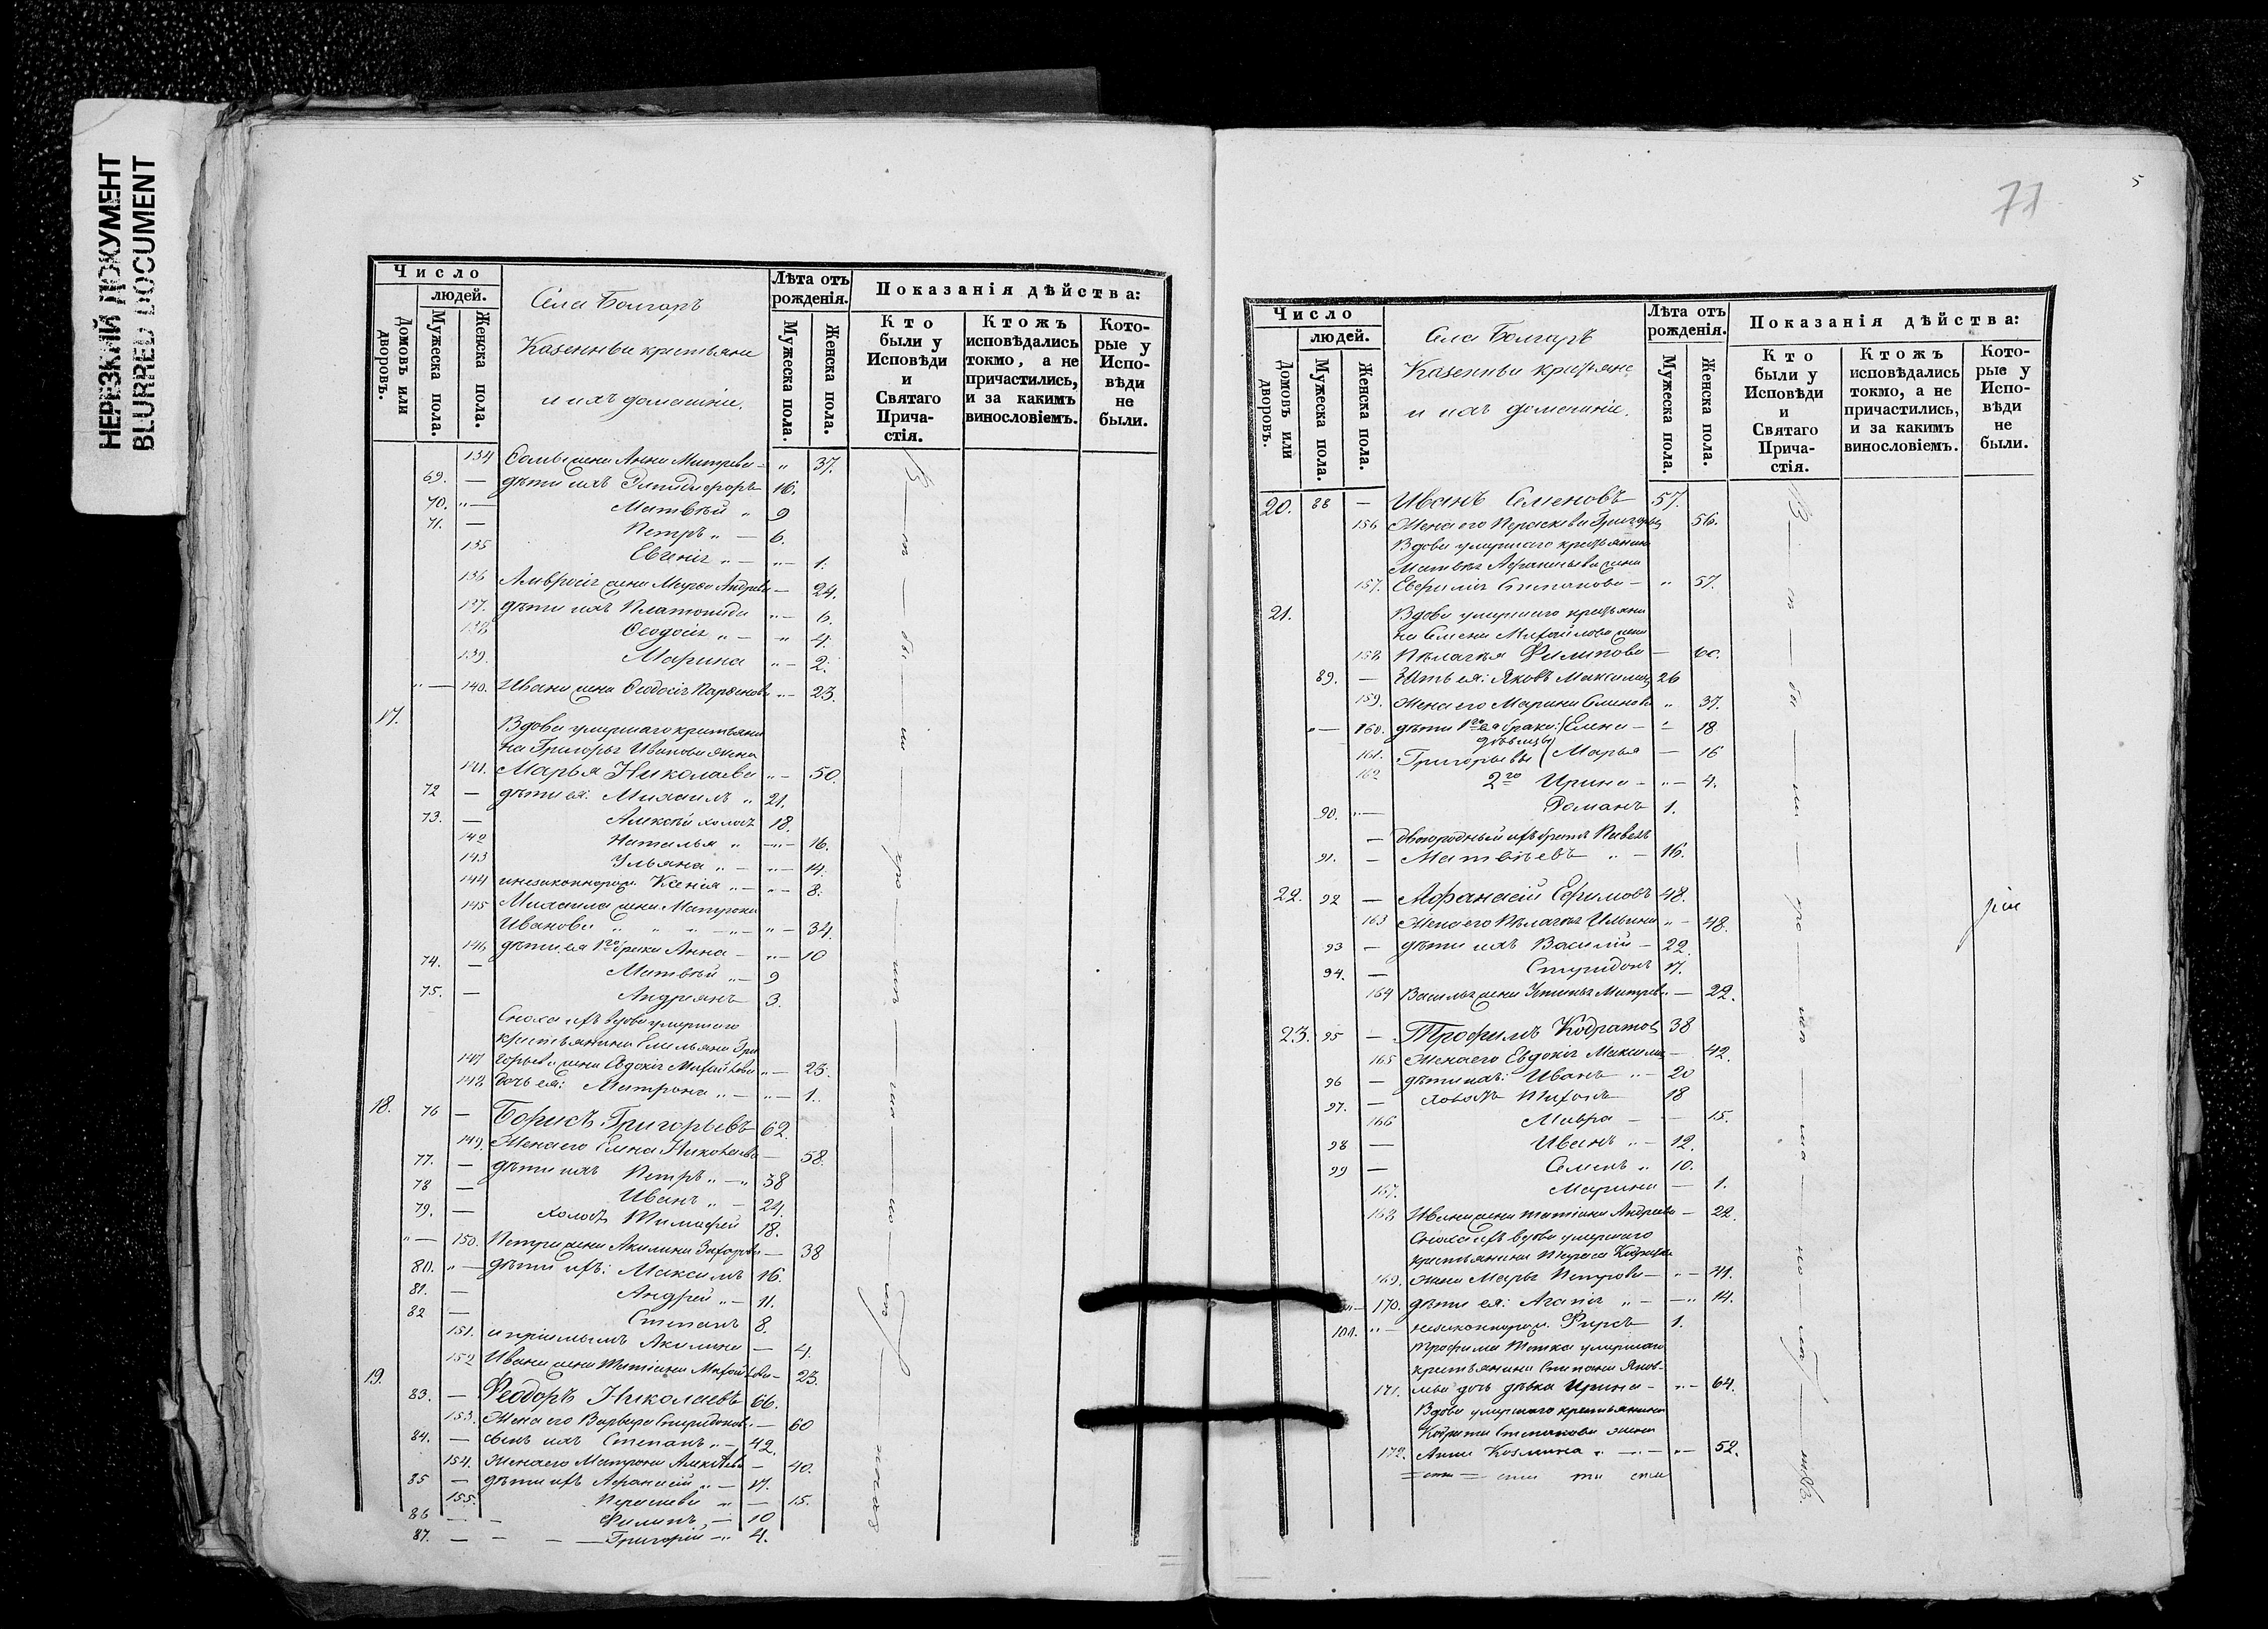 НЕРЕЗКИЙ ДОКУМЕНТ
BLURRED DOCUMENT
Число
людей.
Домовъ или дворовъ.
Мужеска пола.
Женска пола.
Села Болгаръ
Казенныи крестьяне
и ихъ домашніи.
Лѣта отъ рожденія.
Мужеска пола.
Женска пола.
Показанія дѣйства:
Кто были у Исповѣди и Святаго Прича-стія.
Ктожъ исповѣдались токмо, а не причастились, и за какимъ винословіемъ.
Кото-рые у Испо-вѣди не были.
134 жена Анна Митрева - " 37.
69. — дѣти ихъ 16.
70. "— Матвѣй " 9
71. — Петръ " — 6.
135 Евгенія " — "— 1.
136 Амвросія жена Андреева — 24.
137. дѣти ихъ Платонида "— 6.
138 Ѳеодосія " — " 4.
139. Марина "— 2.
"— 140. Ивана жена Ѳеодосія Парѳенова "— 23.
17. Вдова умершаго крестьяни
на Григорья Иванова жена
141. Марья Николаева "— 50.
72 — дѣти ея: Михаилъ " 21.
73. — Алексѣй холостъ 18.
142 Наталья " —"— 16.
143 Ульяна " — "— 14.
144 незаконнорож. Ксенія "— "— 8.
145 Михаила жена Матрона
Иванова " " " —"— "— 34.
146 дѣти ея 1го брака Анна — "— 10
74. — Матвѣй "— 9
75. — Андреянъ 3.
Сноха ихъ вдова умершаго
крестьянина Емельяна Гри
147 горьева жена Евдокія Михайлова "— 23.
148. дочь ея: Матрона "— "— 1.
18. 76 — Борисъ Григорьевъ 62.
149. Жена его Елена Николаева — 58.
77. — дѣти ихъ Петръ "—" 38
78 — Иванъ "— 24.
79. — холостъ Тимофей 18.
"— 150. Петра жена Акилина Захарова — 38
80. "— дѣти ихъ: Максимъ 16.
81. — Андрей "— 11.
82 — Степанъ 8.
151. и пріемышъ Акилина — 4.
152 Ивана жена Татіана Михайлова — 23.
19. 83. — Ѳеодоръ Николаевъ 66.
153. Жена его Варвара Спиридонов. — 60
84. — сынъ ихъ Степанъ "— 42.
154. Жена его Матрона Алексѣева — 40.
85 — дѣти ихъ Афанасій "— 17.
155. " — 15.
86 — - Филипъ — 10
87. — - — —Григорій —" 4.
77
5
Число
людей.
Домовъ или дворовъ.
Мужеска пола.
Женска пола.
Села Болгаръ
Казенныи крестьяне
и ихъ домашніи.
Лѣта отъ рожденія.
Мужеска пола.
Женска пола.
Показанія дѣйства:
Кто были у Исповѣди и Святаго Прича-стія.
Ктожъ исповѣдались токмо, а не причастились, и за какимъ винословіемъ.
Кото-рые у Испо-вѣди не были.
20. 88 — Иванъ Семеновъ 57.
156 Жена его Параскева Григорьева 56.
Вдова умершаго крестьянина
Матвѣя Афанасьева жена
157. Евфимія Степанова — " 57.
21. Вдова умершаго крестьяни
на Семена Михайлова жена
158 Пелагѣя Филипова — 60.
89. — Зять ея: Яковъ Максимовъ 26
159. Жена его Марина Семенова " 37.
"— 160. дѣти 1го ея брака: Елена — " 18
дѣвицы
161. Григорьевы Марья — 16
162 2го Ирина — "— 4.
90. "— Романъ 1.
— двоюродный ихъ братъ Павелъ
91. — Матвѣевъ " — 16.
22. 92 — Афанасій Ефимовъ 48.
163 Жена его Пелагѣя Ильина "— 48.
93 — дѣти ихъ Василій — 22.
94. — Спиридонъ 17.
164 Василья жена Устинья Митрев. — 22.
23. 95 — Трофимъ Кодратов 38
165 Жена его Евдокія Максима — 42.
96 — дѣти ихъ: Иванъ "— 20
97. — холостъ 18
166 Мавра — — 15.
98 — Иванъ "— 12.
99 — Семенъ " 10.
167. Марина — 1.
168 Ивана жена Татіана Андреева — 22.
Сноха ихъ вдова умершаго
крестьянина Тараса Кодратова
169. жена Марья Петрова — "— 41.
170. дѣти ея: Агапія "— —" 14.
101. "— незаконнорож. Фирсъ 1.
Трофима Тетка умершаго
крестьянина Степана Яков-
171. лева дочь дѣвка Ирина — "— 64.
Вдова умершаго крестьянина
Кодрата Степанова жена
172. Анна Козмина " —"— "— 52.